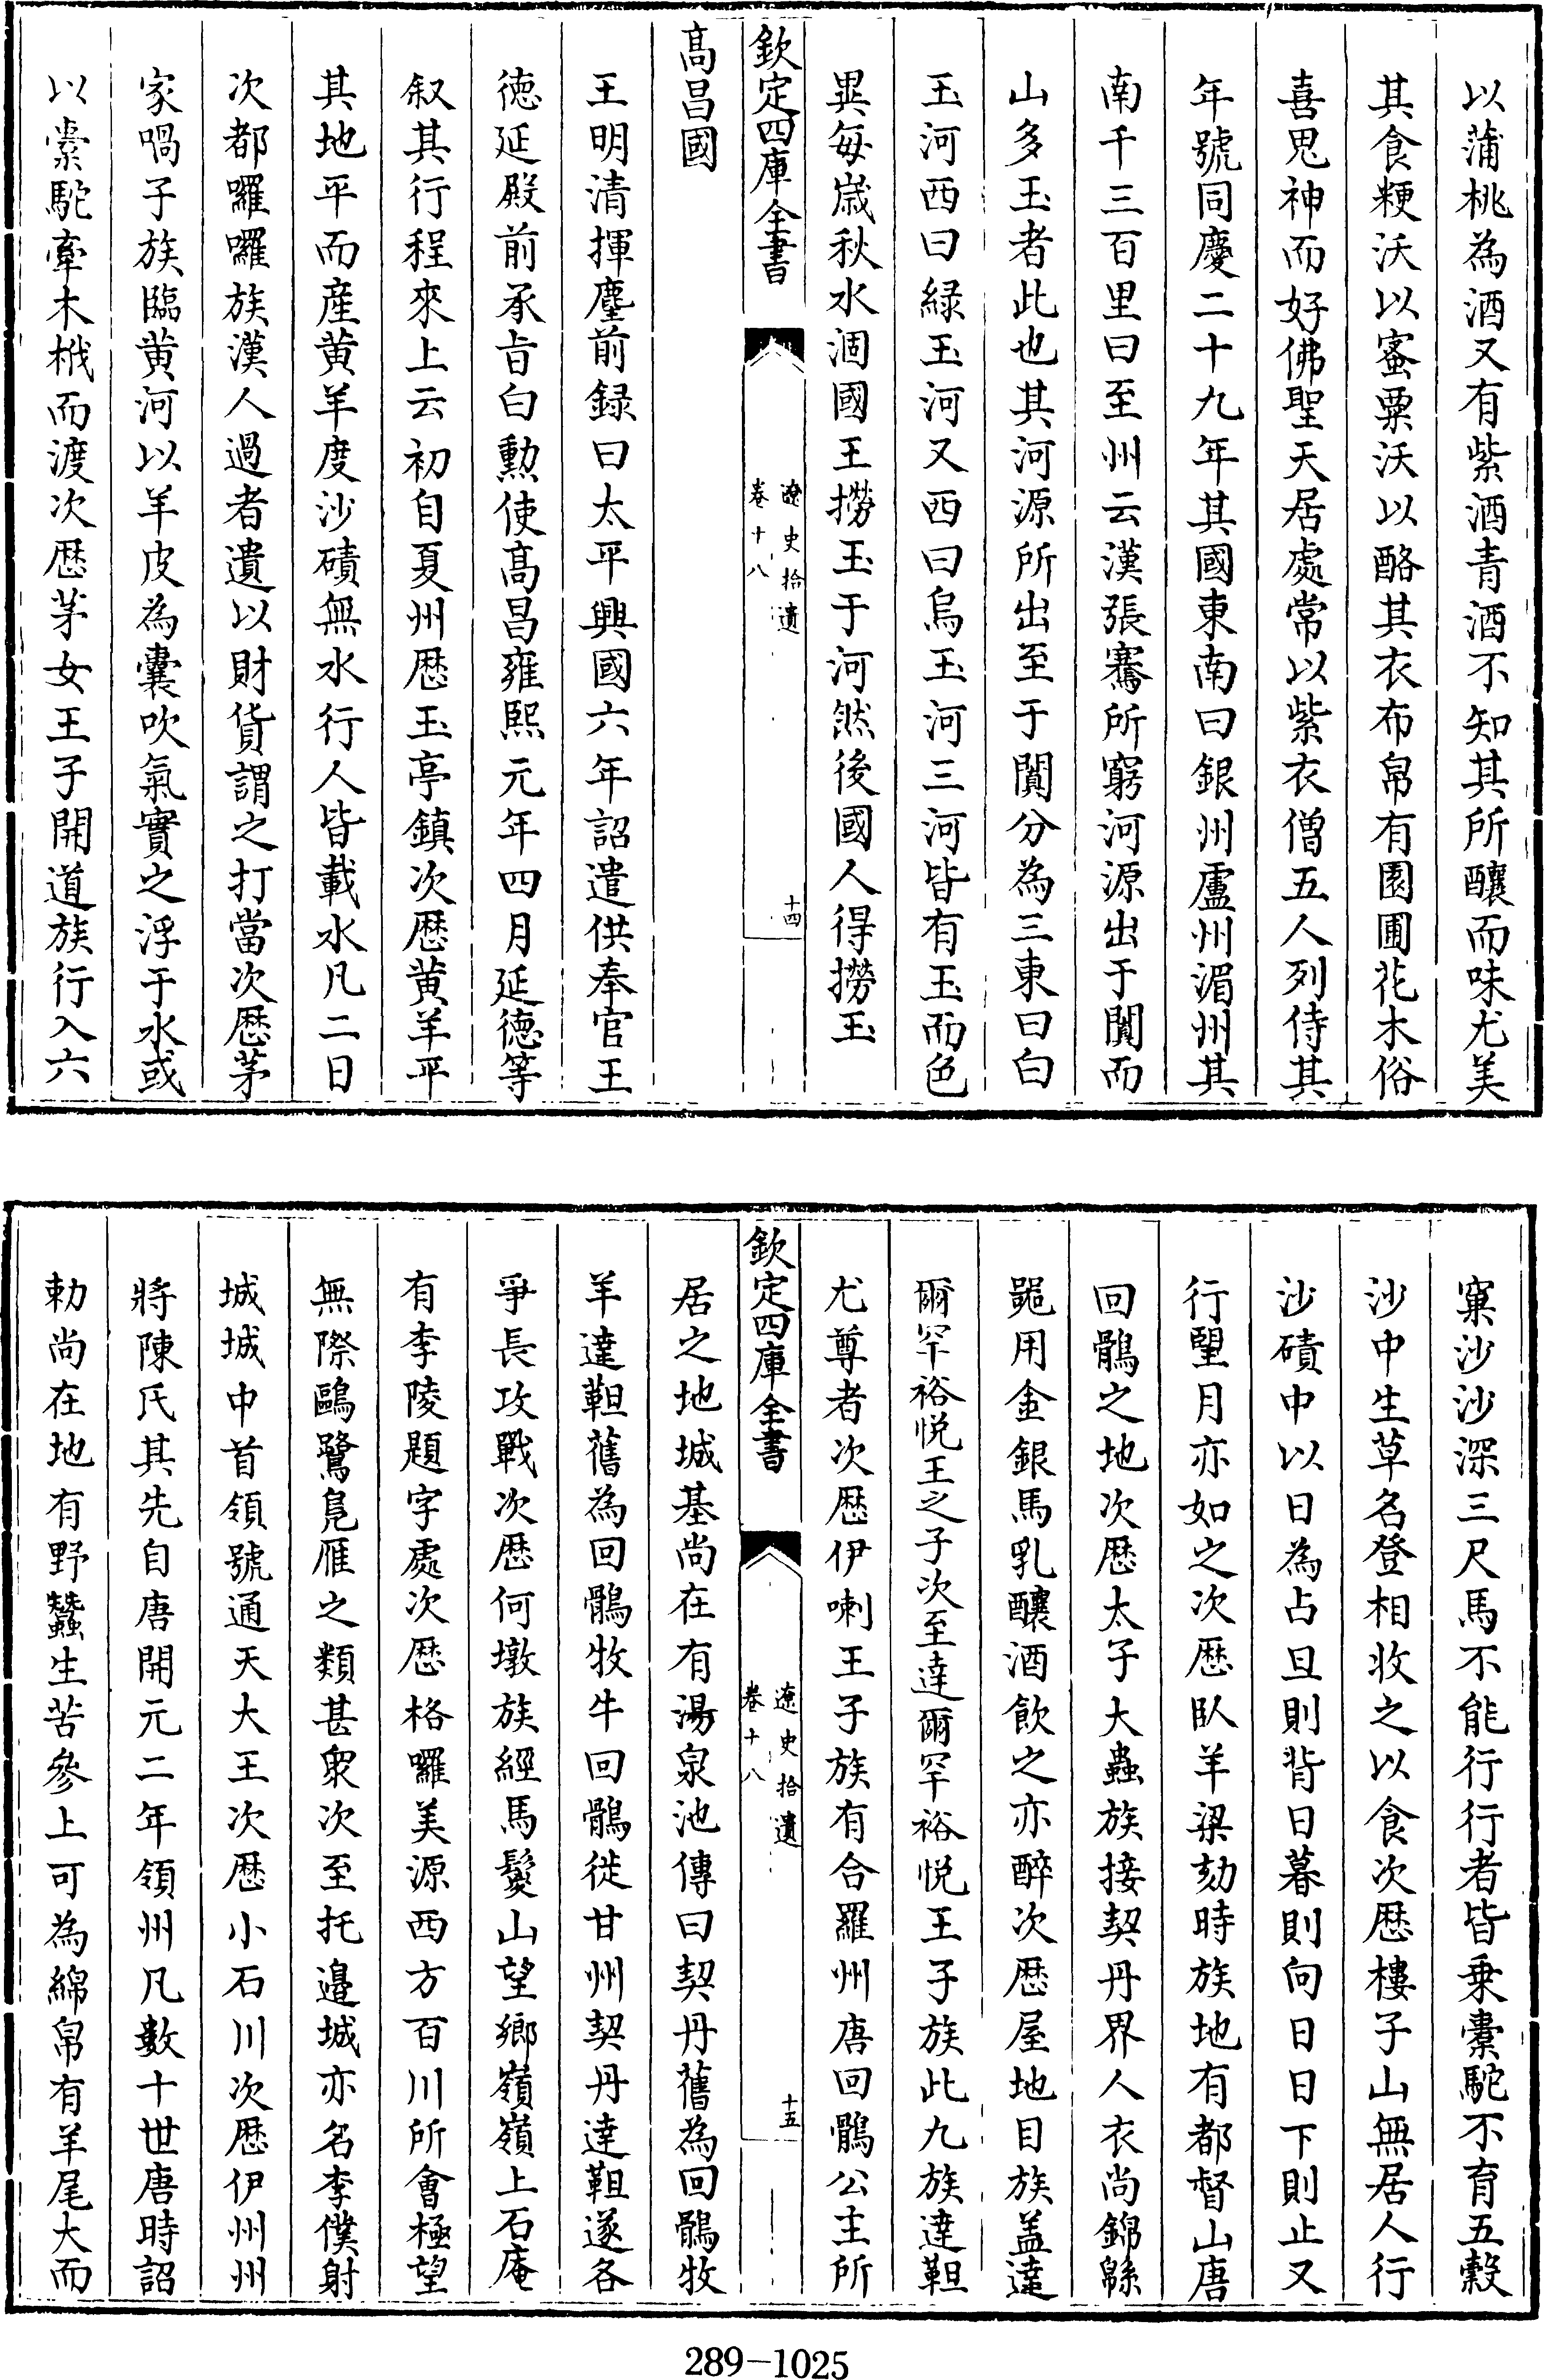 以蒲桃為酒又有紫酒青酒不知其所釀而味尤美
其食粳沃以蜜粟沃以酪其衣布帛有園圃花木俗
喜鬼神而好佛聖天居處常以紫衣僧五人列侍其
年號同慶二十九年其國東南曰銀州盧州湄州其
南千三百里曰至州云漢張騫所窮河源出于闐而
山多玉者此也其河源所出至于闐分為三東曰白
玉河西曰緑玉河又西曰烏玉河三河皆有玉而色
異每嵗秋水涸國王撈玉于河然後國人得撈玉
欽定四庫全書
遼史拾遺
卷十八
十四
髙昌國
王明清揮麈前録曰太平興國六年詔遣供奉官王
徳延殿前承㫖白勲使髙昌雍熙元年四月延徳等
叙其行程來上云初自夏州歴玉亭鎮次歴黄羊平
其地平而産黄羊度沙磧無水行人皆載水凡二日
次都囉囉族漢人過者遺以財貨謂之打當次歴茅
家喎子族臨黄河以羊皮為囊吹氣實之浮于水或
以橐駝牽木栰而渡次歴茅女王子開道族行入六
窠沙沙深三尺馬不能行行者皆乗橐駝不育五糓
沙中生草名登相收之以食次歴樓子山無居人行
沙磧中以日為占旦則背日暮則向日日下則止又
行朢月亦如之次歴臥羊梁劾時族地有都督山唐
回鶻之地次歴太子大蟲族接契丹界人衣尚錦繡
器用金銀馬乳釀酒飲之亦醉次歴屋地目族盖達
爾罕裕悦王之子次至達爾罕裕悦王子族此九族達靼
尤尊者次歴伊喇王子族有合羅州唐回鶻公主所
欽定四庫全書
遼史拾遺
卷十八
十五
居之地城基尚在有湯泉池傳曰契丹舊為回鶻牧
羊達靼舊為回鶻牧牛回鶻徙甘州契丹達靼遂各
爭長攻戰次歴何墩族經馬鬉山望鄉嶺嶺上石庵
有李陵題字處次歴格囉美源西方百川所會極望
無際鷗鷺鳬雁之類甚衆次至托邉城亦名李僕射
城城中首領號通天大王次歴小石川次歴伊州州
將陳氏其先自唐開元二年領州凡數十世唐時詔
勅尚在地有野蠶生苦參上可為綿帛有羊尾大而
289-1025